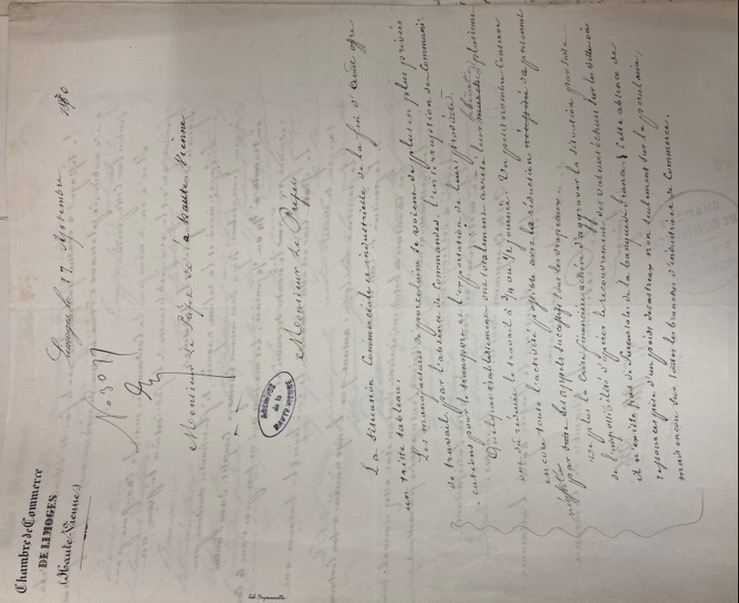 Chambre de Commerce
DE LIMOGES
(Haute-Vienne)
Limoges le 17 Septembre 1870
Monsieur le Préfet de la haute Vienne
ARCHIVES
de la
HAUTE-VIENNE
Monsieur le Préfet
La Situation Commerciale et industrielle de la fin d'Août offre
un triste tableau.
Les manufactures de porcelaine se voient de plus en plus privées
de travail par l'absence de Commandes, l'interruption de Communi-
cations pour le transport et l'exportation de leurs produits.
Quelques établissements ont totalement arrêté leur plusieurs
ont dû réduire le travail à 3/4 ou 1/2 journée. Un petit nombre Conserve
encore toute l'activité possible avec la réduction de personnel
par les appels successifs sous les drapeaux.
De plus la Crise financière achève d'aggraver la Situation par suite
de l'impossibilité d'opérer le recouvrement des valeurs échues sur les villes où
il n'existe pas de Succursale de la banque de france. Cette absence de
ressources pèse d'un poids désastreux non seulement sur la porcelaine,
mais encore sur toutes les branches d'industrie et de Commerce.